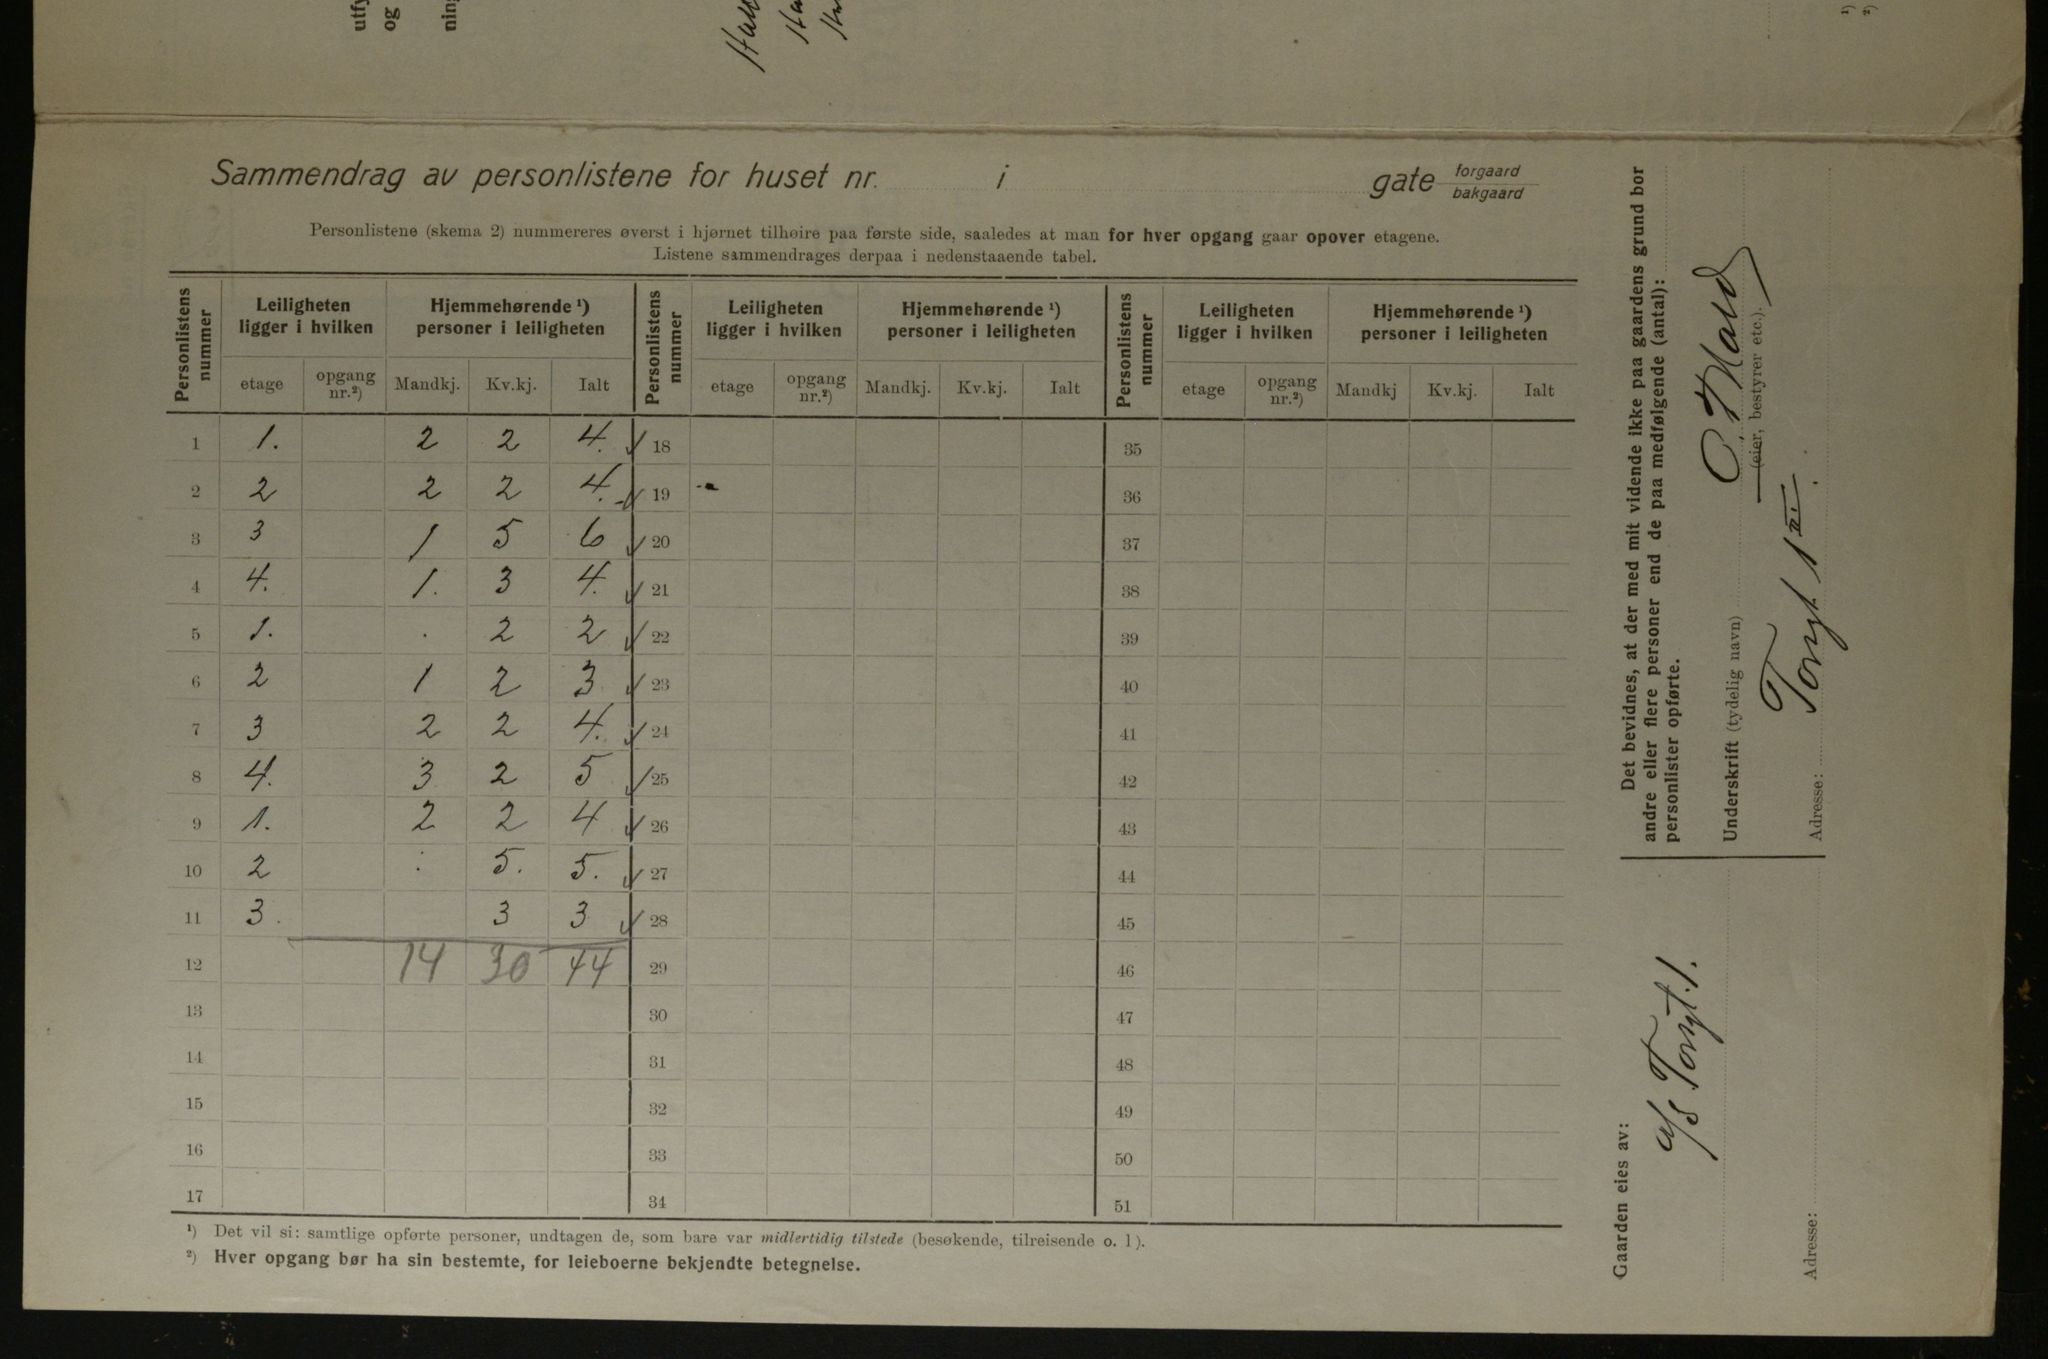 utfy
og
ning
¹)
²)
Sammendrag av personlistene for huset nr. i gate forgaard bakgaard
Personlistene (skema 2) nummereres øverst i hjørnet tilhøire paa første side, saaledes at man for hver opgang gaar opover etagene.
Listene sammendrages derpaa i nedenstaaende tabel.
Personlistens nummer | Leiligheten ligger i hvilken | Hjemmehørende ¹) personer i leiligheten | Personlistens nummer | Leiligheten ligger i hvilken | Hjemmehørende ¹) personer i leiligheten | Personlistens nummer | Leiligheten ligger i hvilken | Hjemmehørende ¹) personer i leiligheten
etage | opgang nr.²) | Mandkj. | Kv.kj. | Ialt | etage | opgang nr.²) | Mandkj. | Kv.kj. | Ialt | etage | opgang nr.²) | Mandkj | Kv.kj. | Ialt
1 1. 2 2 4. 18 35
2 2 2 2 4. 19 36
3 3 1 5 6 20 37
4 4. 1. 3 4. 21 38
5 1. . 2 2 22 39
6 2 1 2 3 23 40
7 3 2 2 4. 24 41
8 4. 3 2 5 25 42
9 1. 2 2 4 26 43
10 2 . 5. 5. 27 44
11 3. 3 3 28 45
12 14 30 44 29 46
13 30 47
14 31 48
15 32 49
16 33 50
17 34 51
¹) Det vil si: samtlige opførte personer, undtagen de, som bare var midlertidig tilstede (besøkende, tilreisende o. l).
²) Hver opgang bør ha sin bestemte, for leieboerne bekjendte betegnelse.
Det bevidnes, at der med mit vidende ikke paa gaardens grund bor
andre eller flere personer end de paa medfølgende (antal):
personlister opførte.
Underskrift (tydelig navn)
(eier, bestyrer etc.).
Adresse: Torvgt 1 III.
Gaarden eies av:
a/s Torvgt. 1.
Adresse: